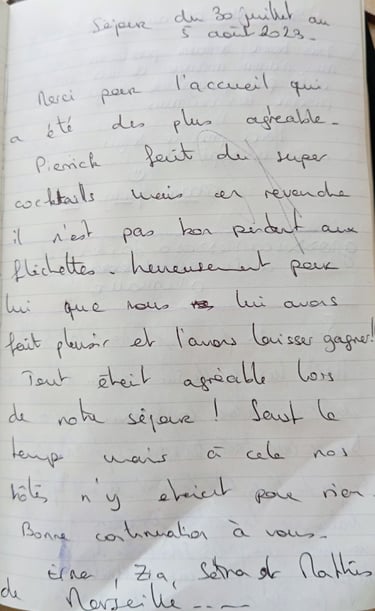 Séjour du 30 juillet au
5 août 2023.
Merci pour l'accueil qui
a été des plus agréable.
Pierrick fait du super
cocktails mais en revenche
il n'est pas bon perdant aux
fléchettes. heureusement pour
lui que nous lui avons
fait plaisir et l'avons laisser gagner!
Tout était agréable lors
de notre séjour ! Sauf le
temps mais à cela nos
hôtes n'y etaient pour rien
Bonne continuation à vous.
, Zia, et Mathis
de Marseille....